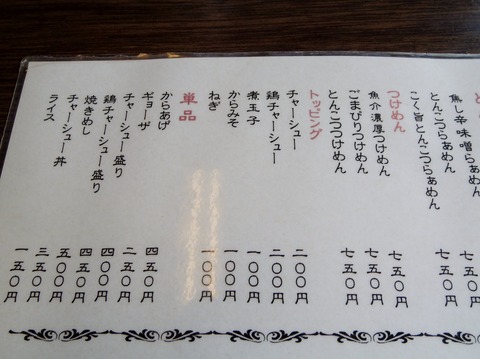 焦し辛味噌らぁめん
とんこつらぁめん 七五〇円
こく旨とんこつらぁめん 七五〇円
つけめん
魚介濃厚つけめん 七五〇円
ごまぴりつけめん 七五〇円
とんこつつけめん 七五〇円
トッピング
チャーシュー 二〇〇円
鶏チャーシュー 二〇〇円
煮玉子 一〇〇円
からみそ 一〇〇円
ねぎ 一〇〇円
単品
からあげ 四五〇円
ギョーザ 二五〇円
チャーシュー盛り 四〇〇円
鶏チャーシュー盛り 四五〇円
焼きめし 五〇〇円
チャーシュー丼 三五〇円
ライス 一五〇円